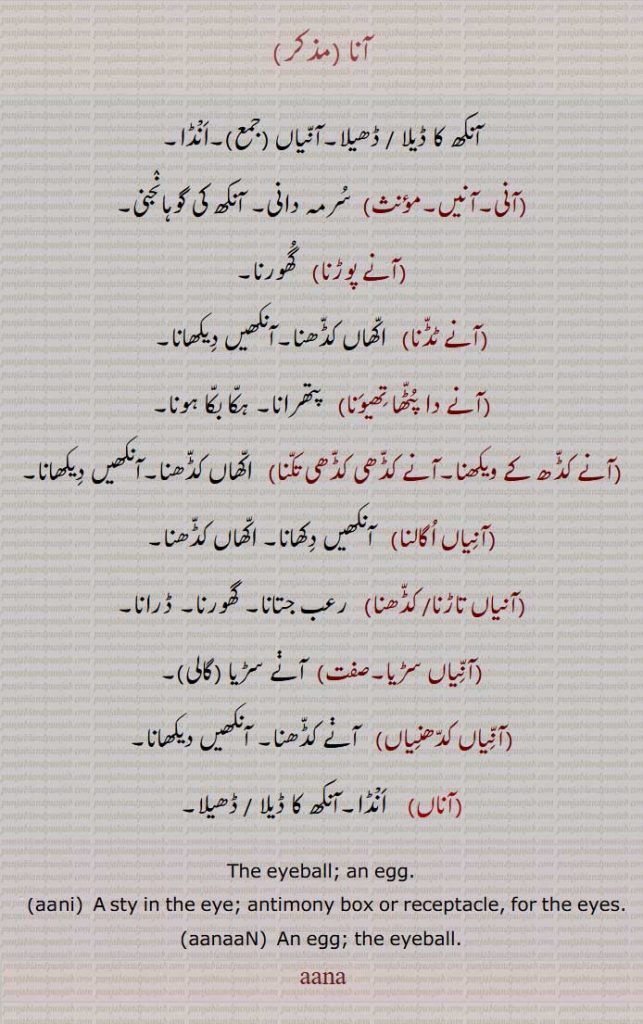 آنا (مذکر)
آنکھ کا ڈیلا / ڈھیلا۔ آنّیاں (جمع)۔ اَنْڈا۔
(آنی۔ آنیں۔ مؤنث) سُرمہ دانی۔ آنکھ کی گوہانْجنی۔
(آنے پوڑنا) گُھورنا۔
(آنے ٹڈّنا) اکّھاں کڈّھنا۔ آنکھیں دِیکھانا۔
(آنے دا پُٹّھا تِھیوَنا) پتھرانا۔ ہکّا بکّا ہونا۔
(آنے کڈّھ کے ویکھنا۔ آنے کڈّھی کڈّھی تکّنا) اکّھاں کڈّھنا۔ آنکھیں دِیکھانا۔
(آنِیاں اُگالنا) آنکھیں دِکھانا۔ اکّھاں کڈّھنا۔
(آنیاں تاڑنا/ کڈّھنا) رعب جتانا۔ گھورنا۔ ڈرانا۔
(آنِّیاں سڑیا۔ صفت) آنْے سڑیا (گالی)۔
(آنِّیاں کدّھنِیاں) آنْے کڈّھنا۔ آنکھیں دیکھانا۔
(آناں) اَنْڈا۔ آنکھ کا ڈیلا / ڈھیلا۔
The eyeball; an egg.
(aani) A sty in the eye; antimony box or receptacle, for the eyes.
(aanaaN) An egg; the eyeball.
aana